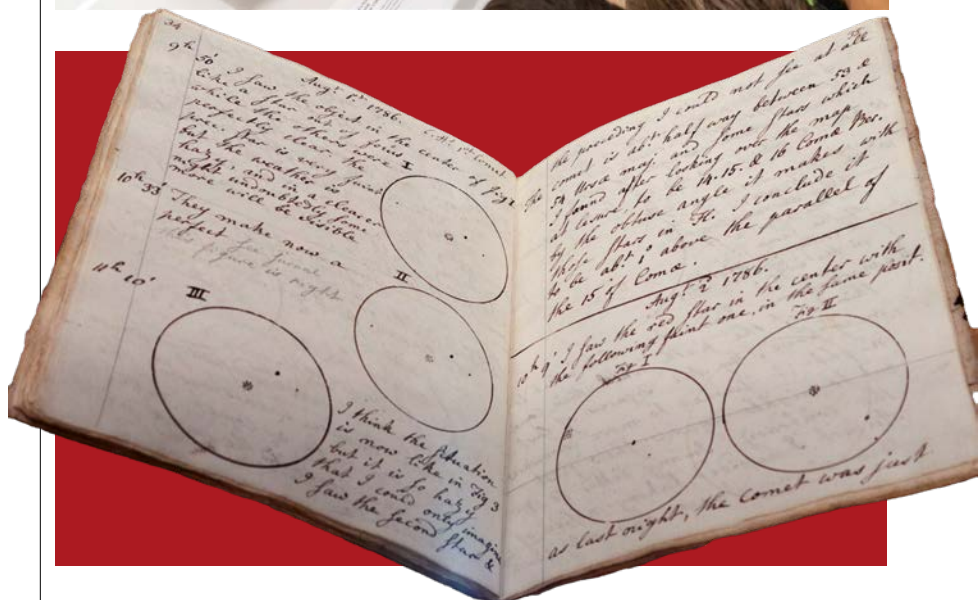 34
Augt 1st 1786. C.H.'s 1st Comet
9h 50' I saw the object in the center of fig I
like a star out of focus,
while the others were
perfectly clear. The
prec. star is very faint
but the weather is
hazy and in a clearer
night undoubtedly some
more will be visible
I
10h 33' They make now a
perfect
this figure is right
II
11h 10'
III
I think the situation
is now like in Fig 3
but it is so hazy
that I could only imagine
I saw the second star &
the preceding I could not see at all
The comet is abt half way between 53 &
54 Ursæ maj. and some stars which
I found after looking over the map
at leisure, to be 14. 15. & 16 Comæ Ber.
by the obtuse angle it makes with
those stars in Fl. I conclude it
to be abt 1° above the parallel of
the 15 of Comæ.
Augt 2d 1786.
10h 9' I saw the red star in the center with
the following faint one, in the same posit.
Fig I
Fig II
as last night, the comet was just